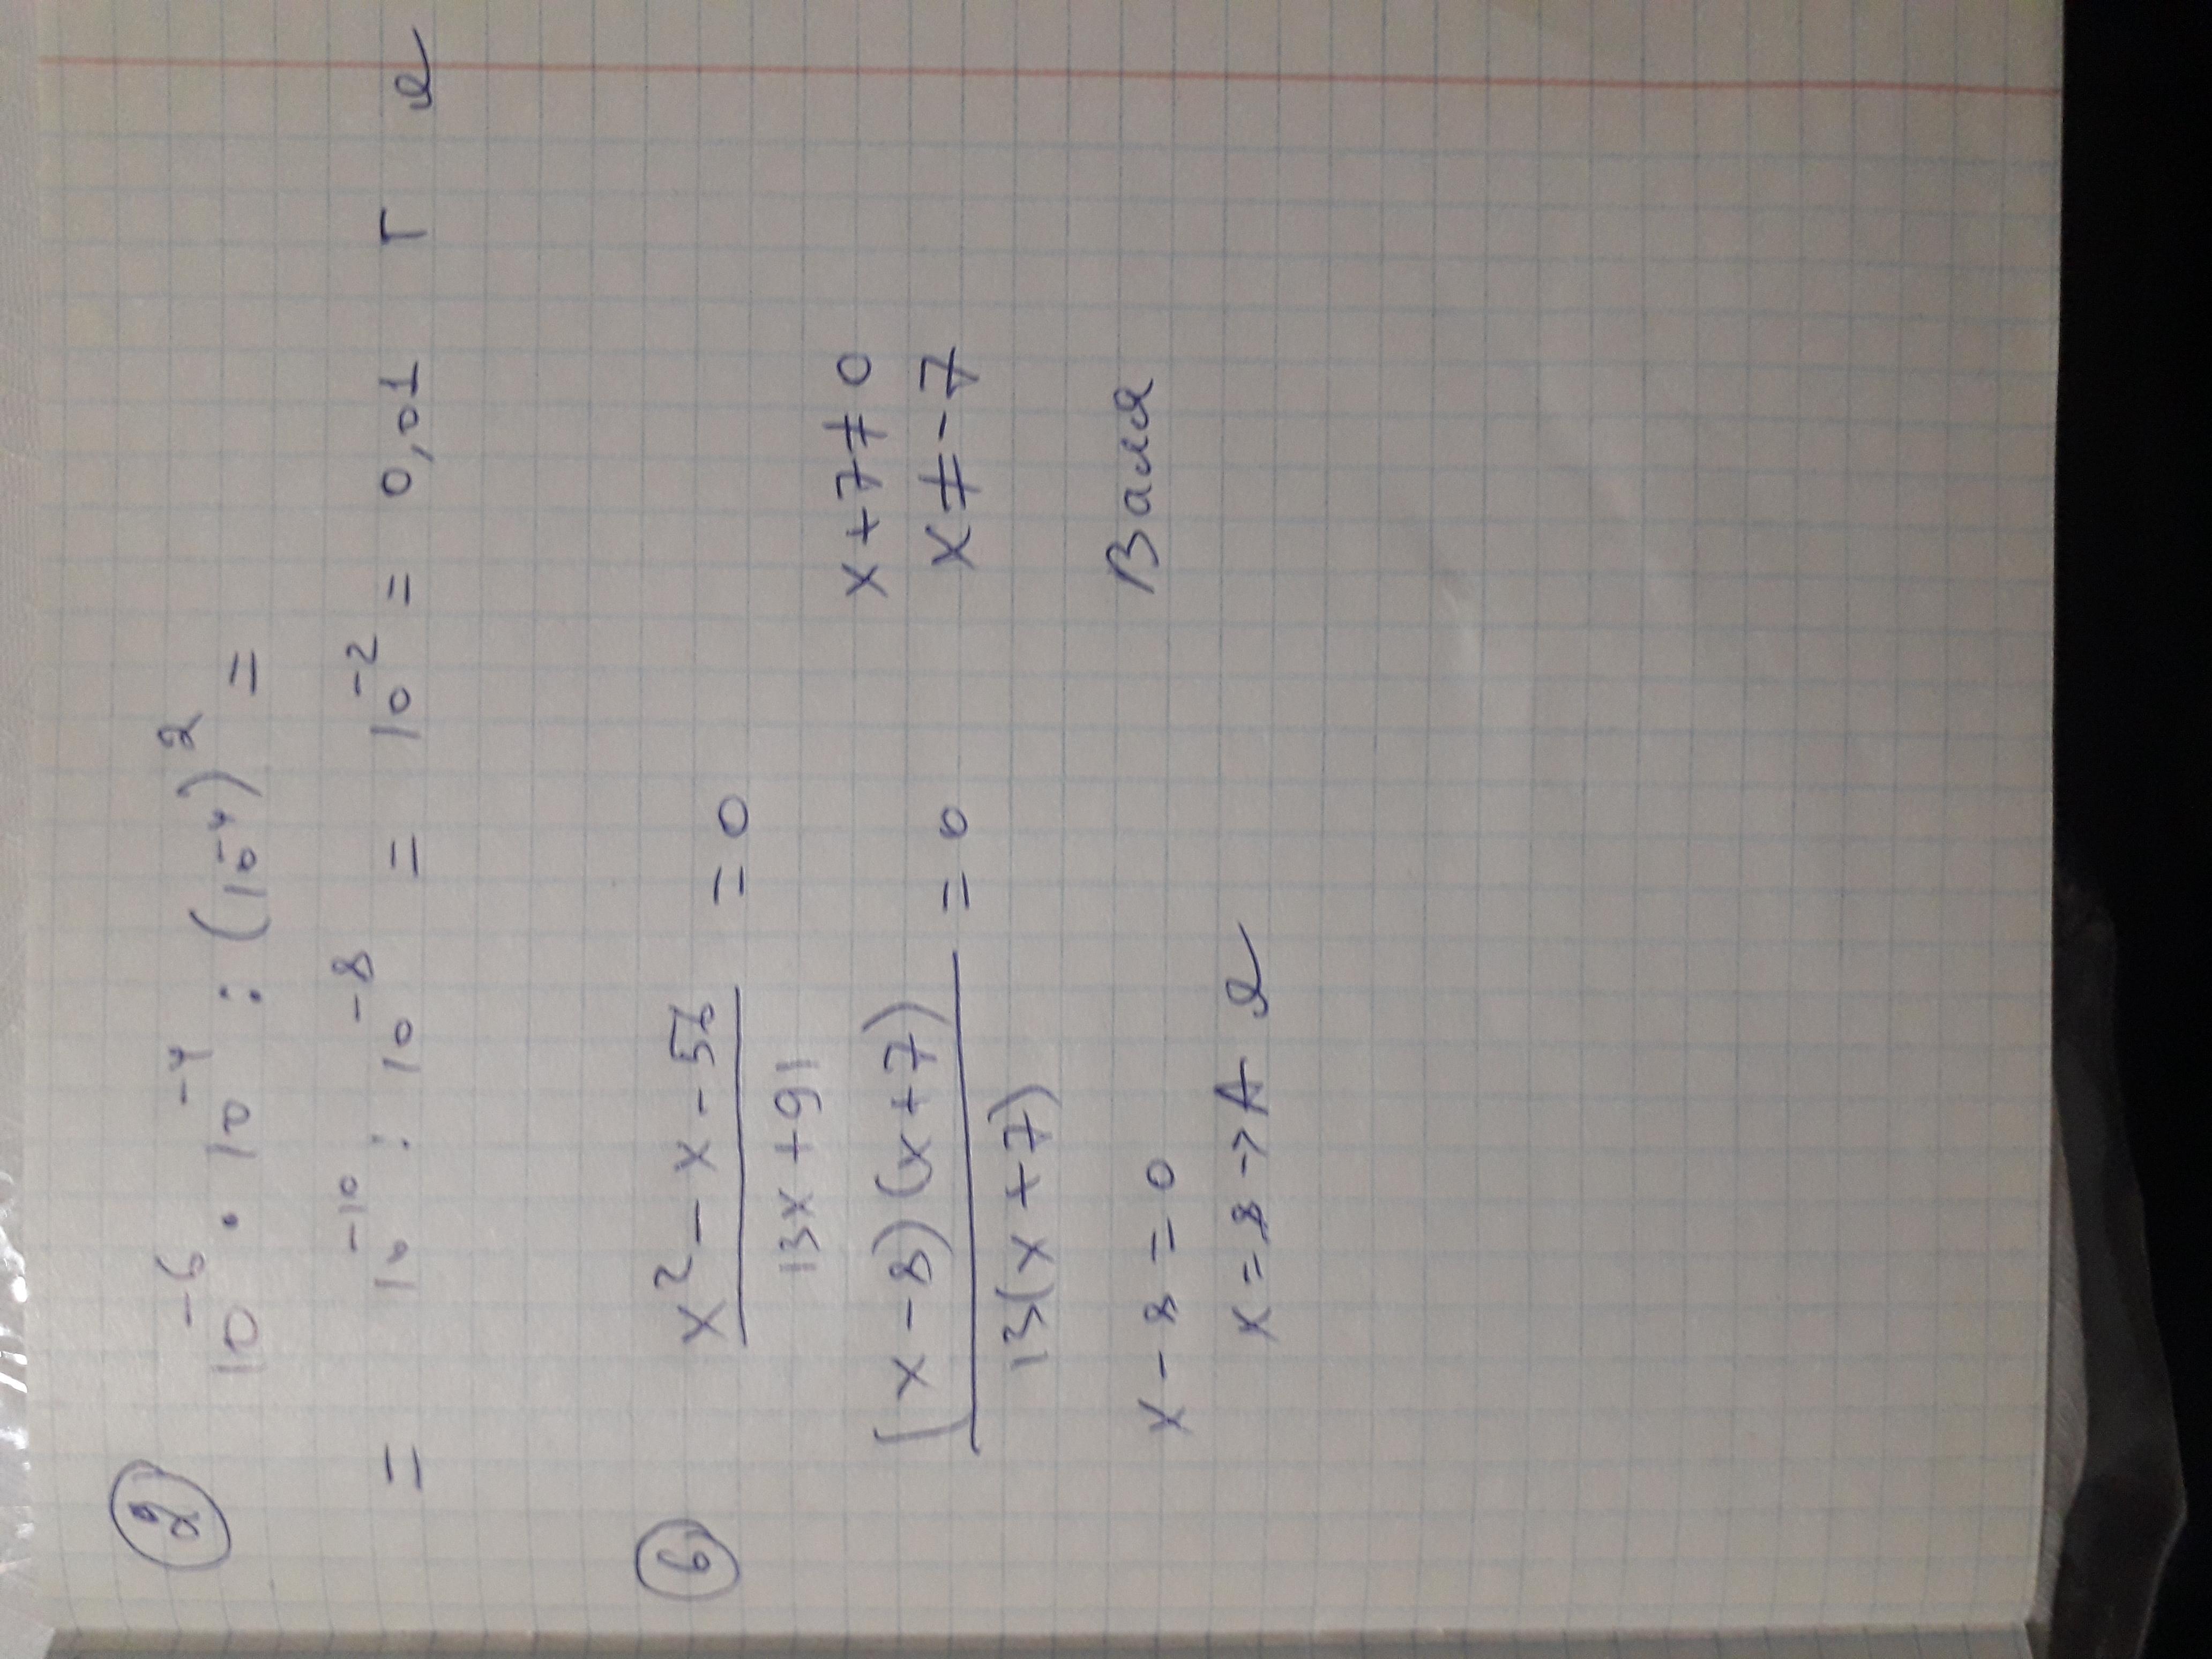 2
10⁻⁶ · 10⁻⁴ : (10⁻⁴)² =
= 10⁻¹⁰ : 10⁻⁸ = 10⁻² = 0,01 Г я
6
x² - x - 56 = 0
13x + 91
(x - 8)(x + 7) = 0
13(x + 7)
x + 7 ≠ 0
x ≠ -7
x - 8 = 0
x = 8 → А я
Валя